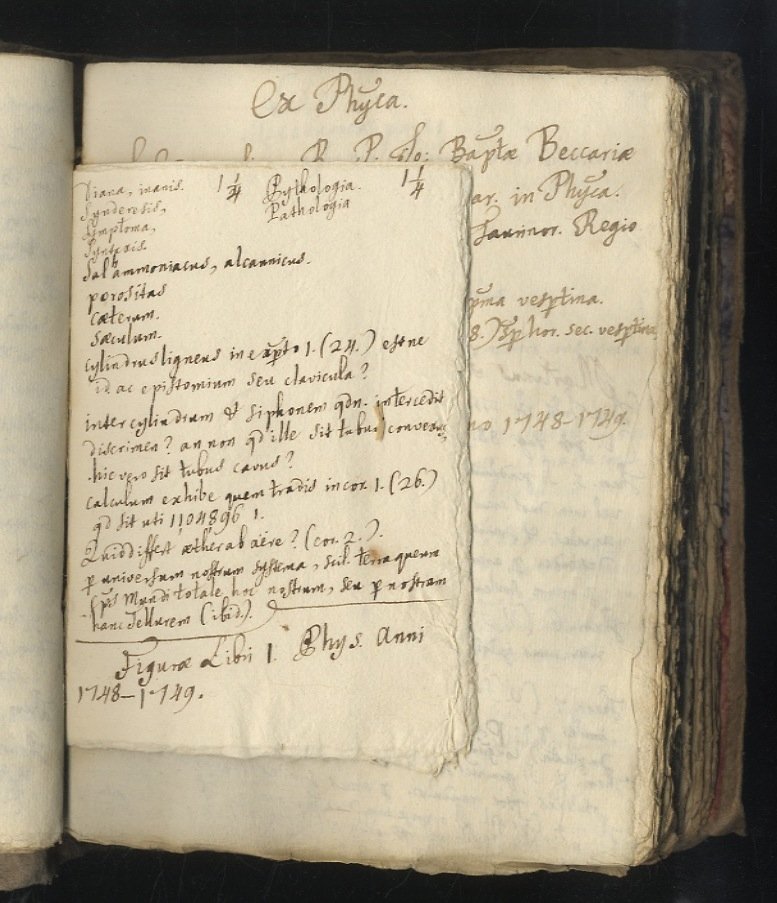 Ex Phyca.
R. P. Jo: Baptae Beccariae
ar. in Phyca.
Taurinor. Regio
pma vespertina.
8.) Sp hor. sec. vespertina
no 1748-1749.
Diana, inanis. 1 1/4 Pythologia. 1 1/4
Synderesis, Pathologia
Symptoma,
Syntexis.
Sal ammoniacus, alcannicus.
porositas
caeterum.
saeculum.
cylindrus ligneus in expto 1. (24.) estne
id ac epistomium seu clavicula?
inter cylindrum & siphonem qdn. intercedit
discrimen? an non qd ille sit tubus convexus
hic vero sit tubus cavus?
Calculum exhibe quem tradis in cor. 1. (26.)
qd sit uti 1104896 1.
Quid differt aether ab aere? (cor. 2.).
p universum nostrum systema, scil. terraqueum
ps Mundi totale hoc nostrum, seu p nostram
hanc Tellurem (ibid.).
Figurae Libri 1. Phys. Anni
1748-1749.